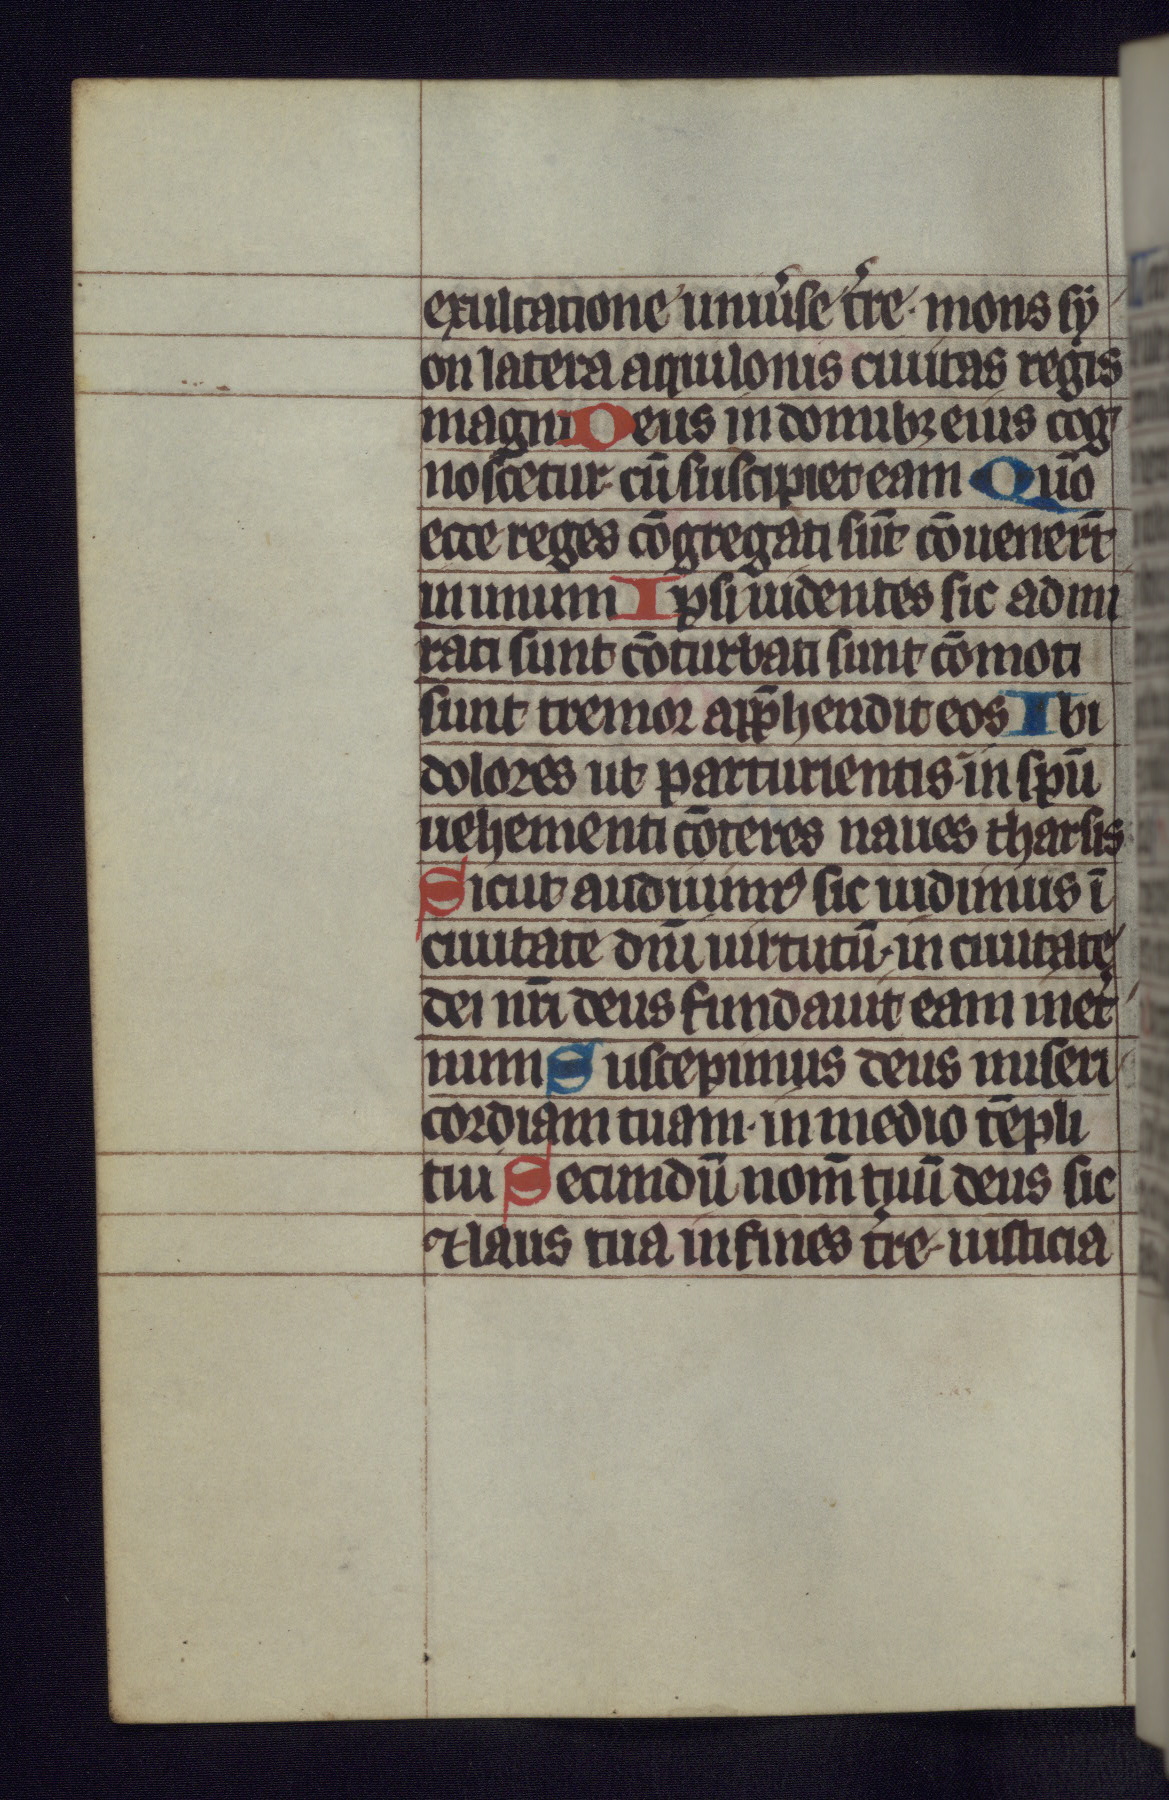 exultatione uniũse t̃re · mons sÿ
on latera aquilonis ciuitas regis
magni Deus in domibꝫ eius cog
noscetur · cũ suscipiet eam Quõ
ecce reges cõgregati sũt cõuenert̃
in unum Ipsi uidentes sic admi
rati sunt cõturbati sunt cõmoti
sunt tremor app̃hendit eos Ibi
dolores ut parturientis · in sp̃u
uehementi cõteres naues tharsis
Sicut audiuimꝰ sic uidimus ĩ
ciuitate dñi uirtutũ · in ciuitate
dei nr̃i deus fundauit eam inet̃
num Suscepimus deus miseri
cordiam tuam · in medio tẽpli
tui Secundũ nom̃ tuũ deus sic
⁊ laus tua in fines t̃re · iusticia